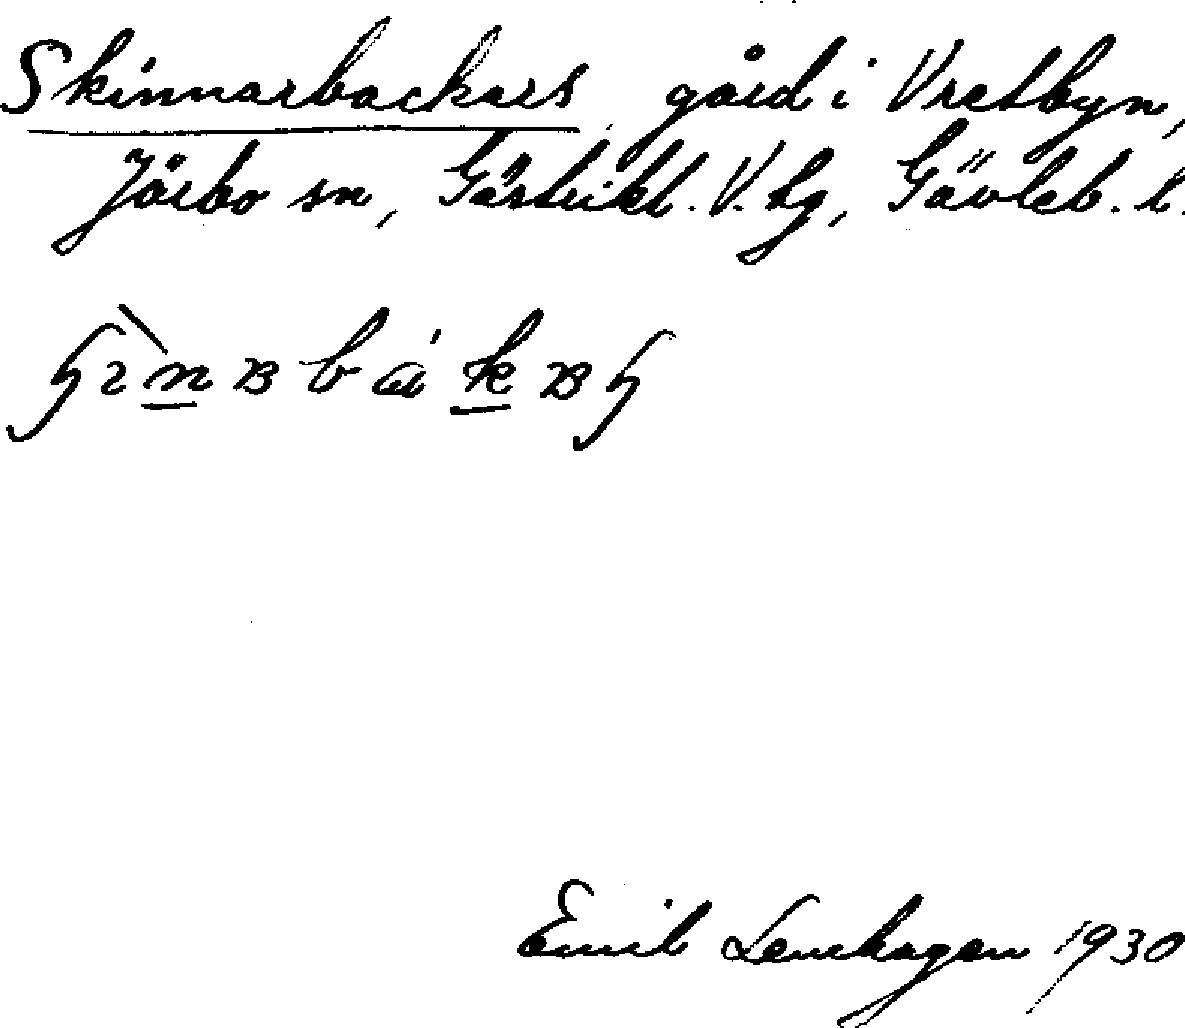 Skinnarbackars, gård i Vretbyn,
Järbo sn, Gästrikl. V. tg, Gävleb. l.
Emil Lenhagen 1930